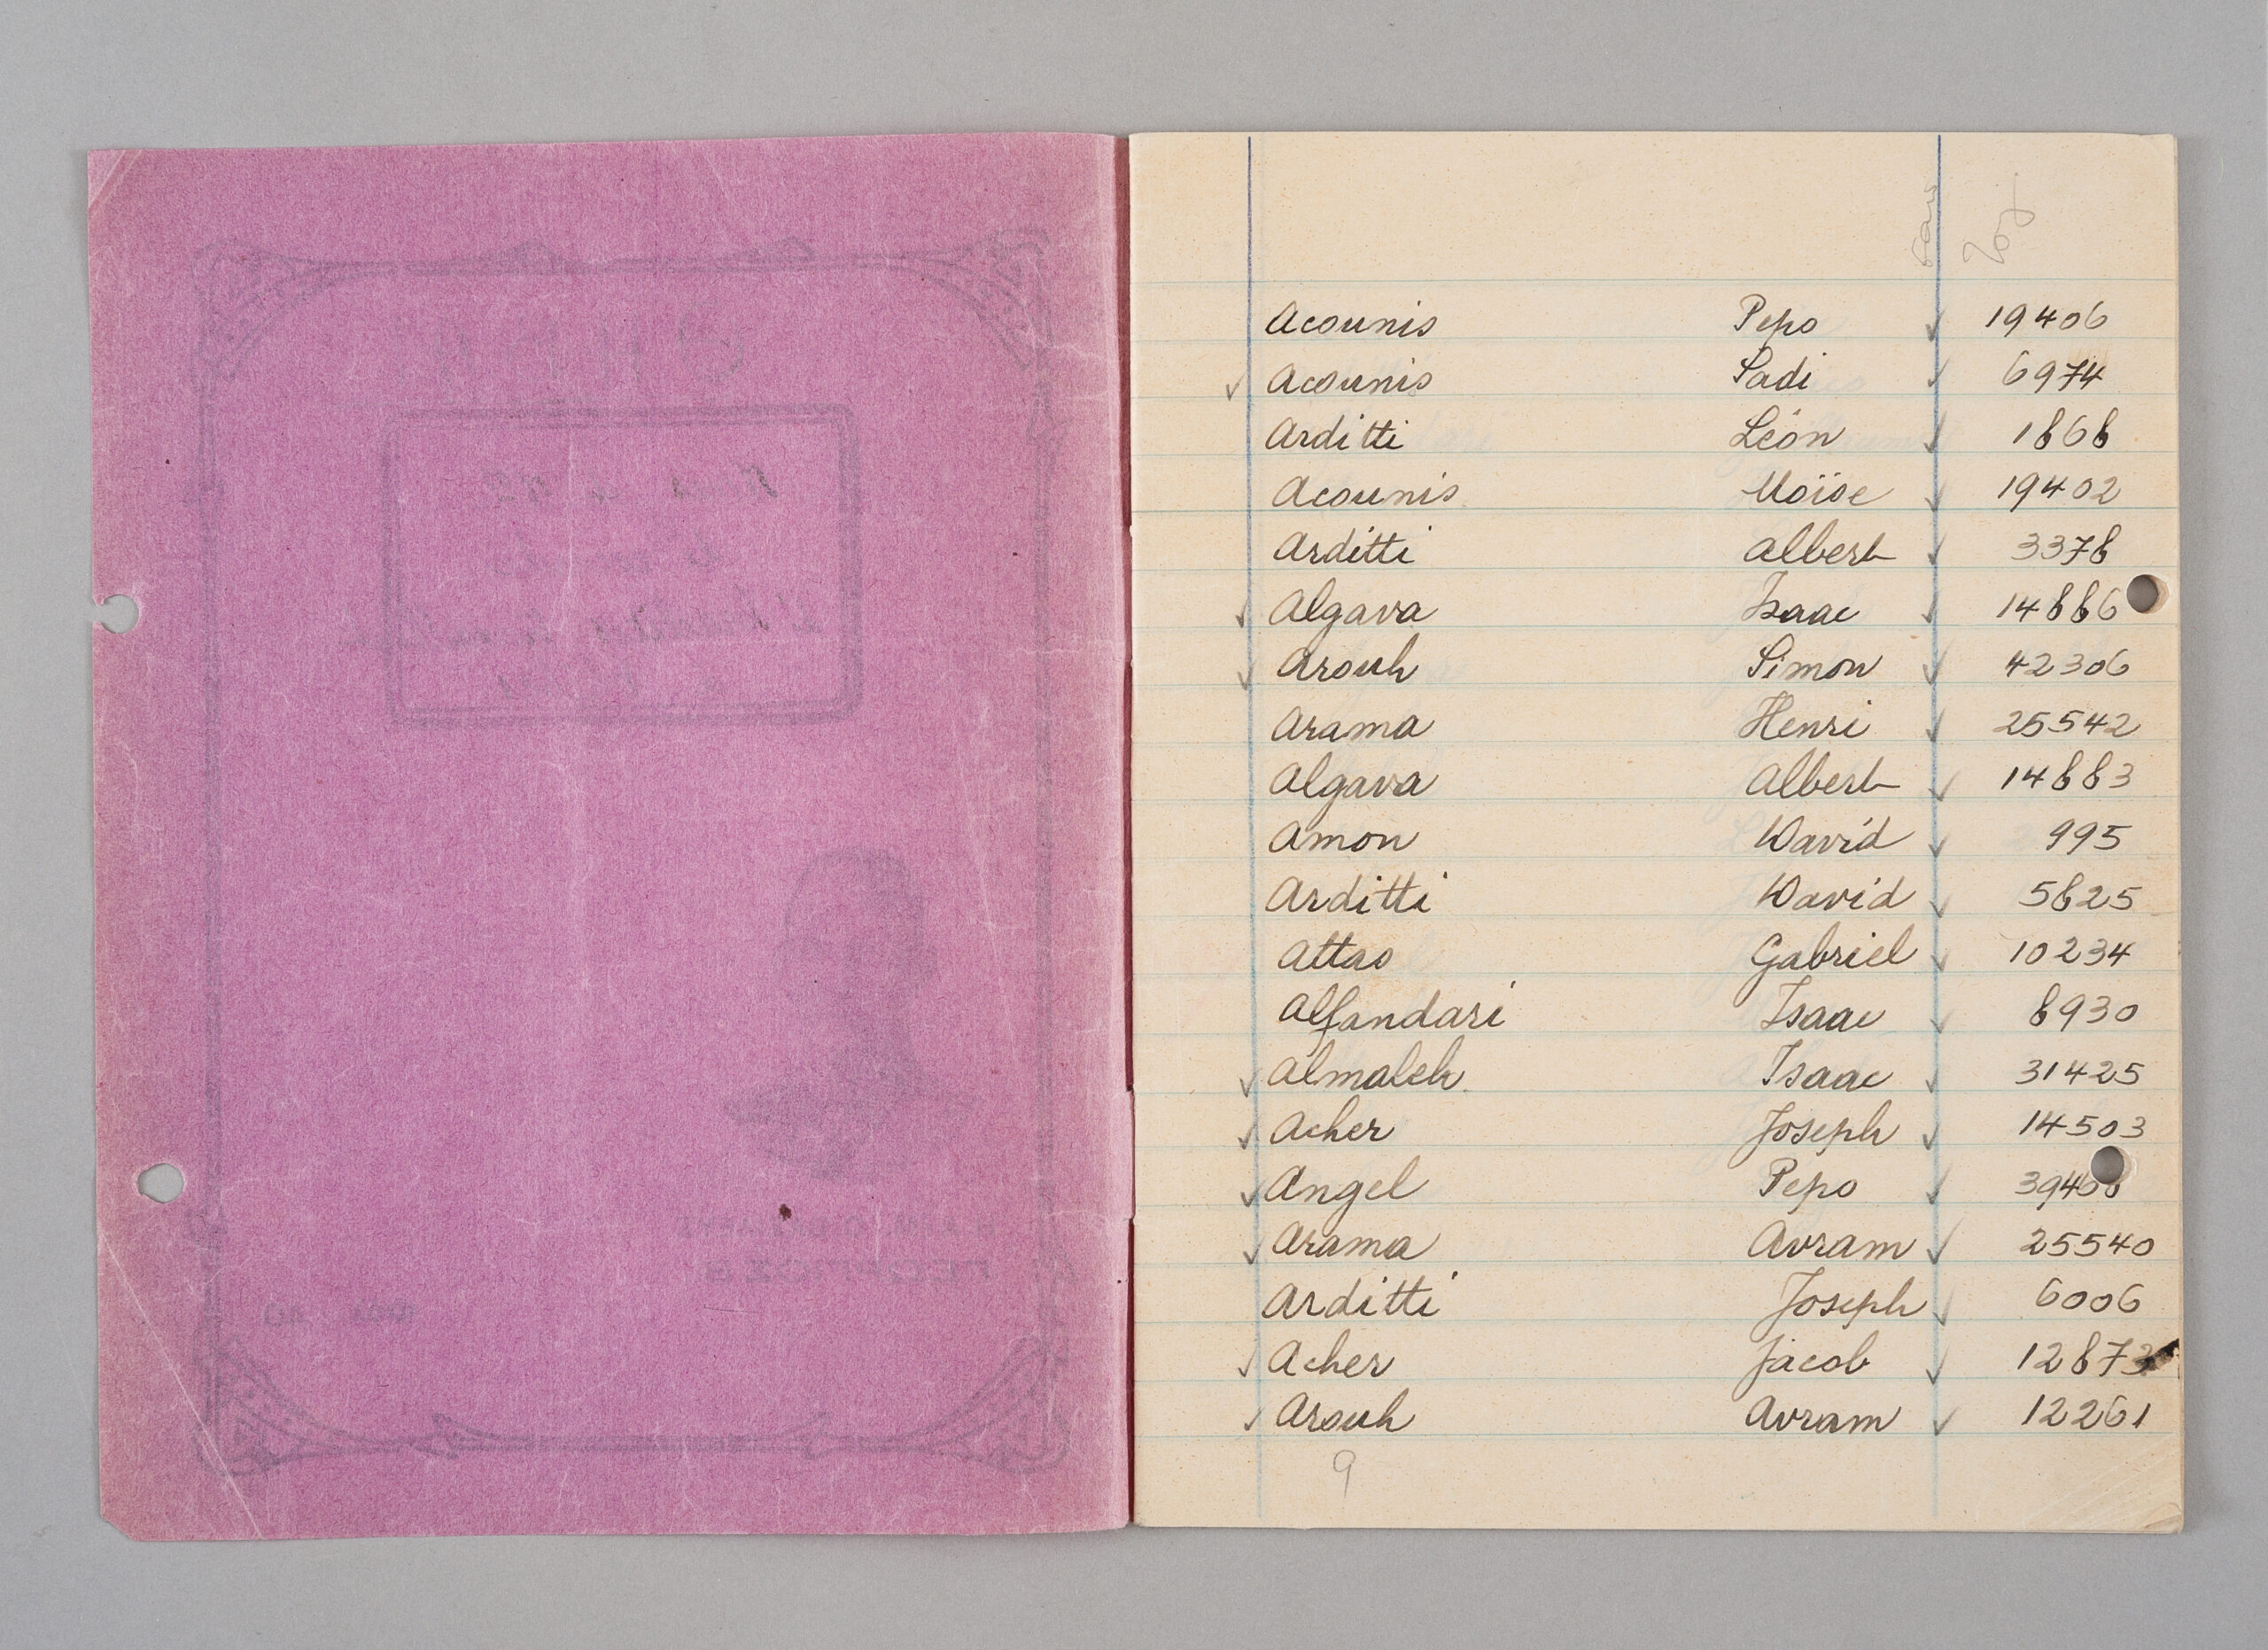 Acounis Pepo ✓ 19406
✓ Acounis Sadi ✓ 6974
Arditti Léon ✓ 1868
Acounis Moïse ✓ 19402
Arditti Albert ✓ 3378
✓ Algava Isaac ✓ 14886
✓ Arouh Simon ✓ 42306
Arama Henri ✓ 25542
Algava Albert ✓ 14883
Amon David ✓ 995
Arditti David ✓ 5825
Attas Gabriel ✓ 10234
Alfandari Isaac ✓ 8930
✓ Almaleh Isaac ✓ 31425
✓ Acher Joseph ✓ 14503
✓ Angel Pepo ✓
✓ Arama Avram ✓ 25540
Arditti Joseph ✓ 6006
✓ Acher Jacob ✓ 12873
✓ Arouh Avram ✓ 12261
9